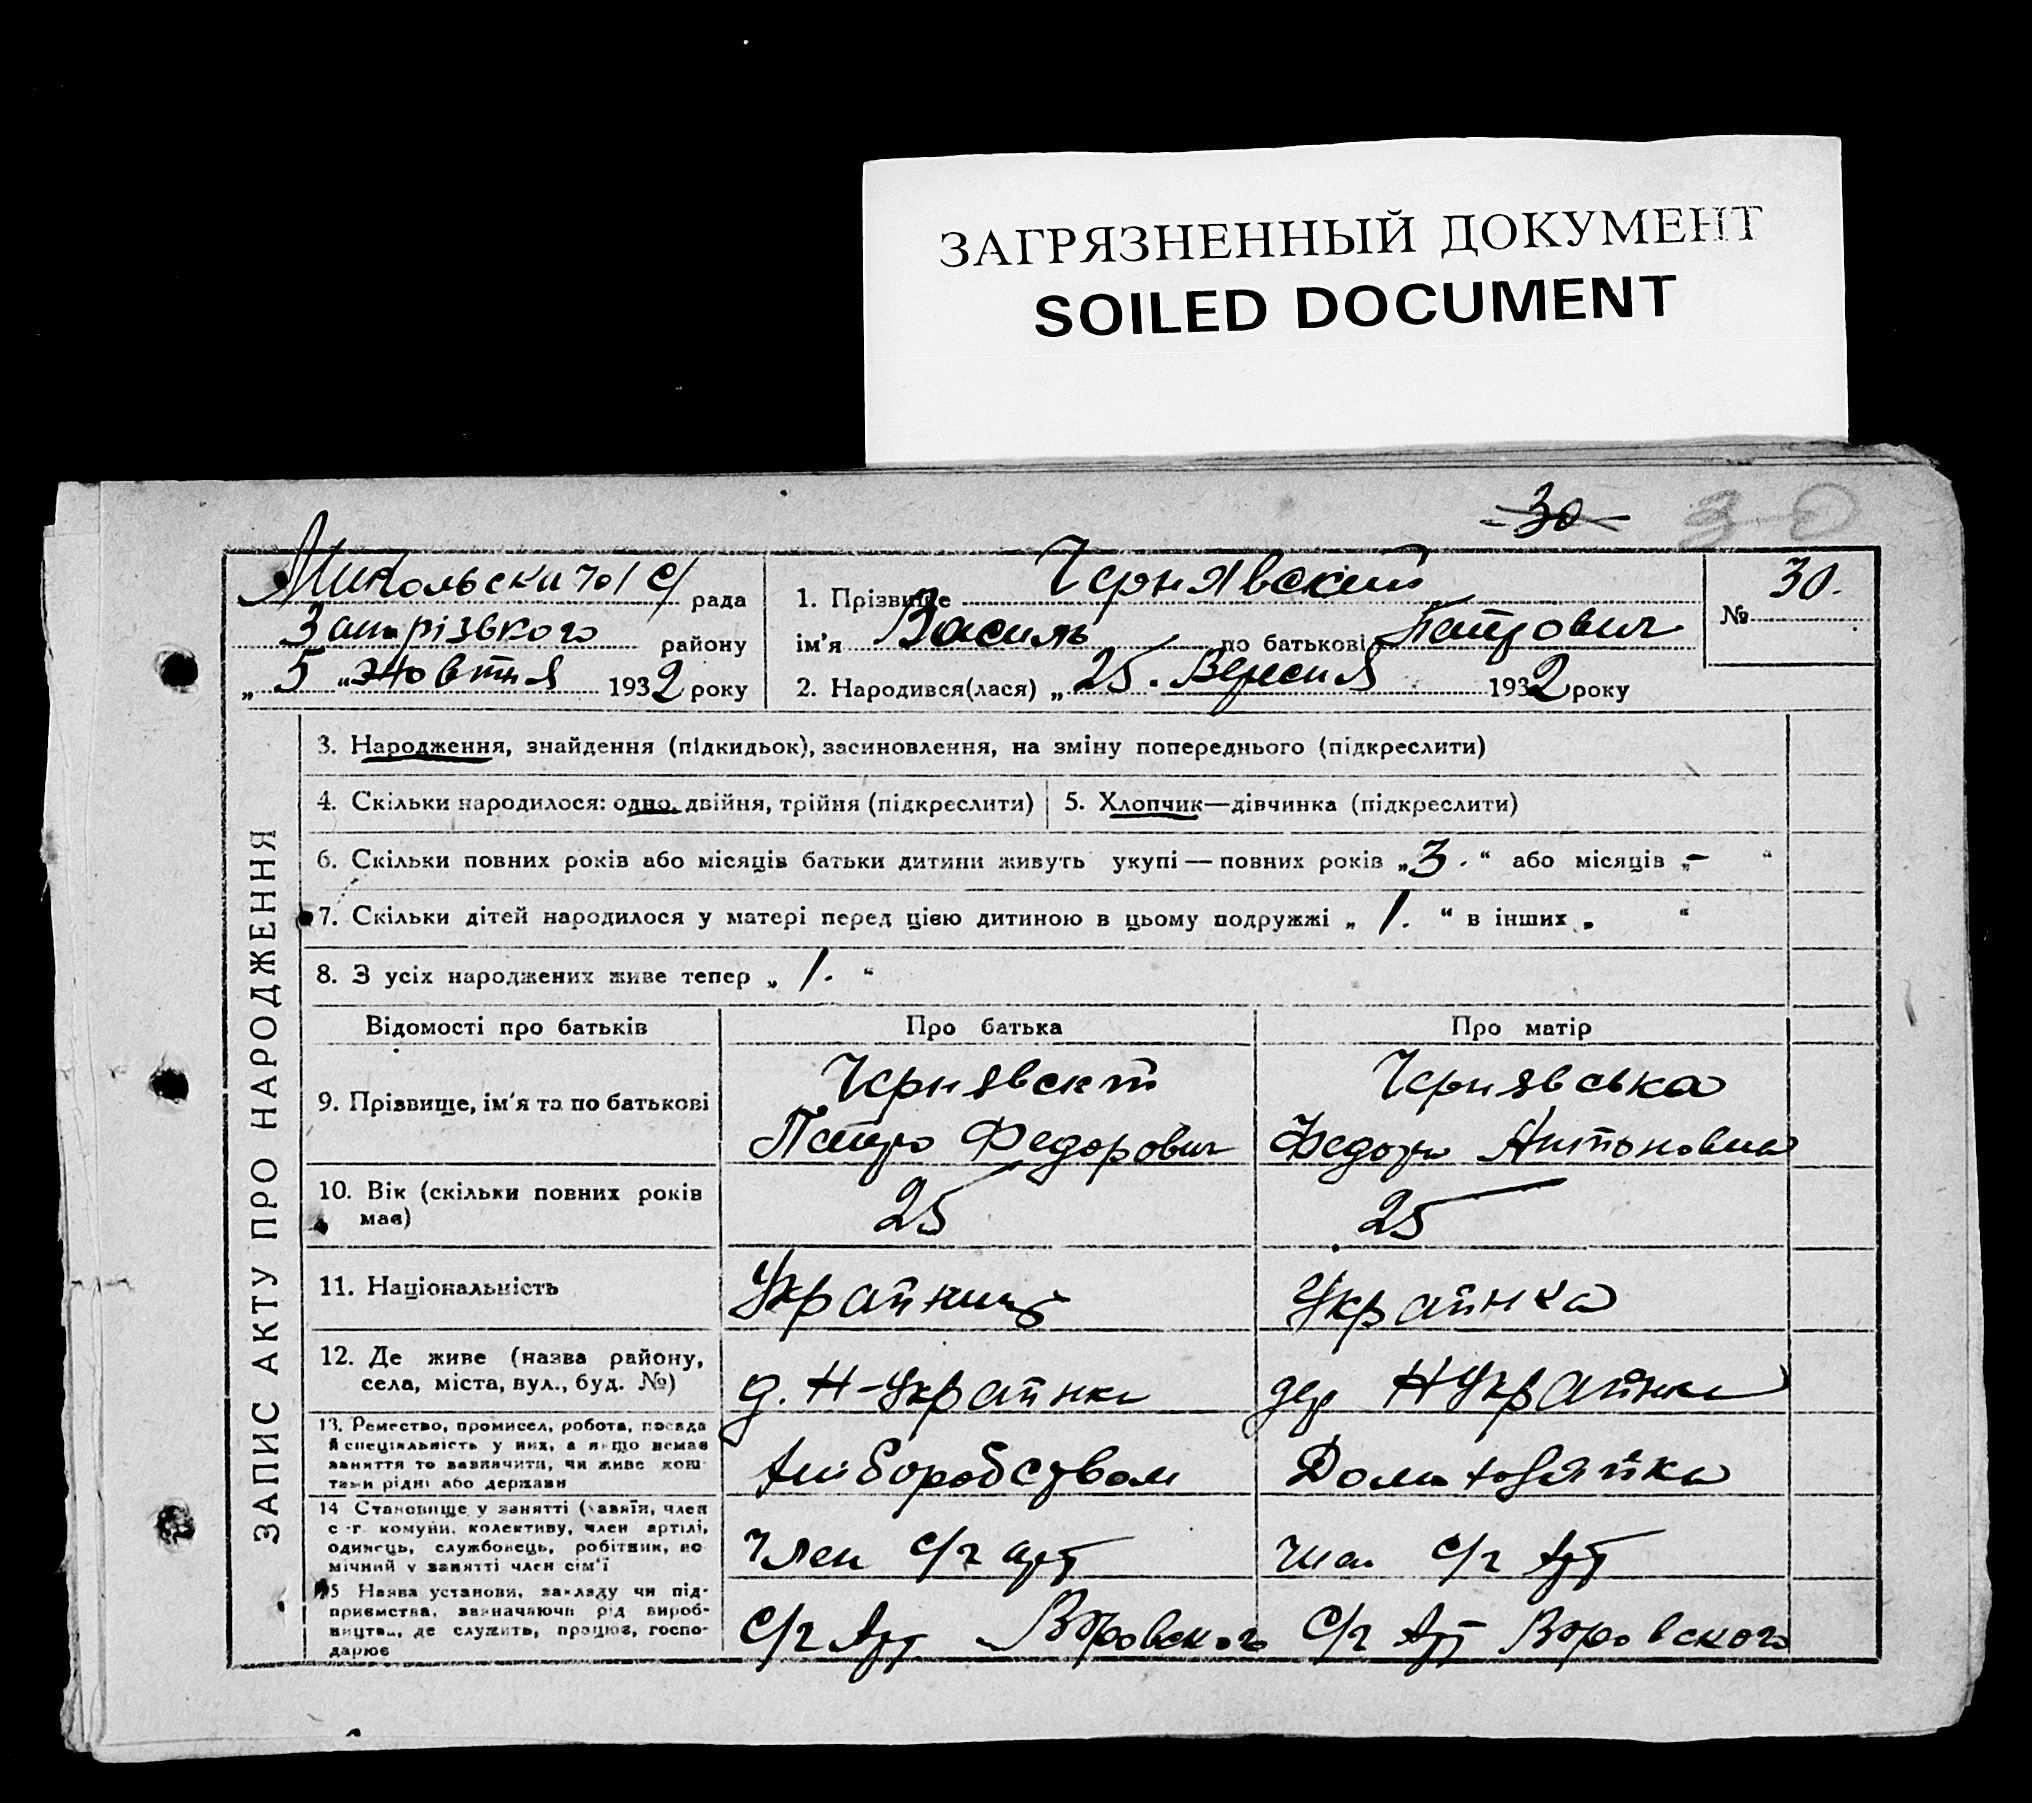 ЗАГРЯЗНЕННЫЙ ДОКУМЕНТ
SOILED DOCUMENT
30 30
рада
району
„ 5 „ жовтня 1932 року
1. Прізвище Чернявский
ім'я Василь по батькові Петрович
2. Народився(лася) „ 25. Вересня 1932 року
№ 30.
ЗАПИС АКТУ ПРО НАРОДЖЕННЯ
3. Народження, знайдення (підкидьок), засиновлення, на зміну попереднього (підкреслити)
4. Скільки народилося: одно, двійня, трійня (підкреслити)
5. Хлопчик—дівчинка (підкреслити)
6. Скільки повних років або місяців батьки дитини живуть укупі — повних років „ 3. “ або місяців „ - “
7. Скільки дітей народилося у матері перед цією дитиною в цьому подружжі „ 1. “ в інших „ “
8. З усіх народжених живе тепер „ 1. “
Відомості про батьків
Про батька
Про матір
9. Прізвище, ім'я та по батькові
Петро Федорович
Чернявська
10. Вік (скільки повних років
має)
25
25
11. Національність
Українка
12. Де живе (назва району,
села, міста, вул., буд. №)
д. Н-Українка
дер НУкраїнка
13. Ремество, промисел, робота, посада
й спеціяльність у них, а якщо немає
заняття то зазначити, чи живе кош-
тами рідні або держави
14 Становище у занятті (хазяїн, член
с.-г. комуни, колективу, член артілі,
одинець, службовець, робітник, по-
мічний у занятті член сім'ї
Член с/г арт
с/г Арт
15 Назва установи, закладу чи під-
приємства, зазначаючи рід вироб-
ництва, де служить, працює, госпо-
дарює
С/г Арт Воровского
С/г Арт Воровского